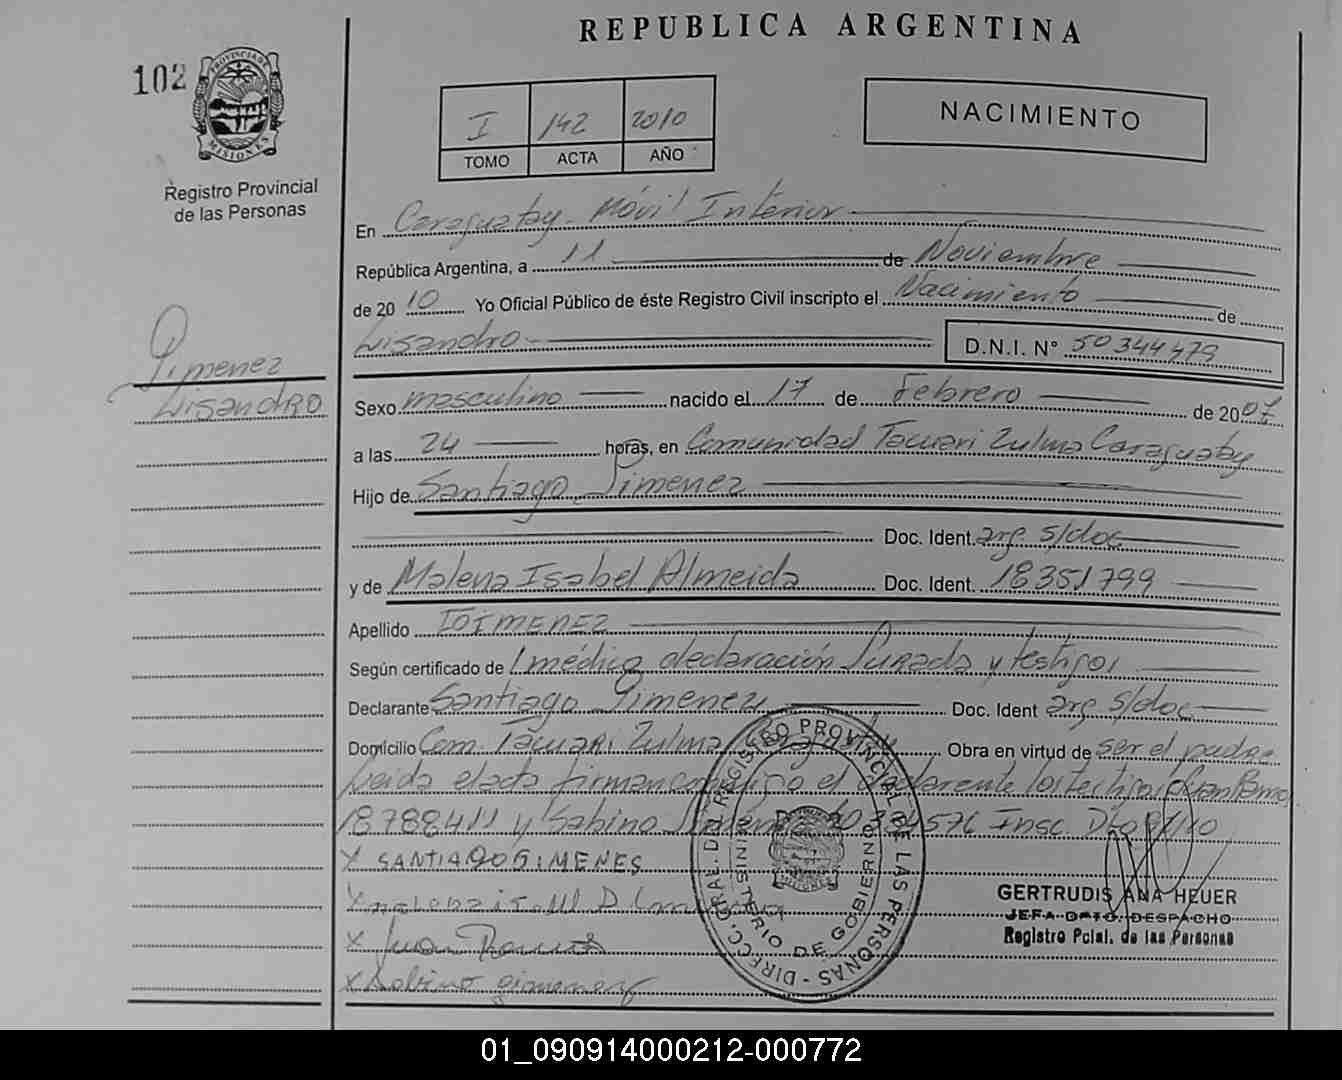 REPUBLICA ARGENTINA
102
PROVINCIA DE
MISIONES
Registro Provincial
de las Personas
I 142 2010
TOMO ACTA AÑO
NACIMIENTO
En Caraguatay - Móvil Interior
República Argentina, a 11 de Noviembre
de 2010 Yo Oficial Público de éste Registro Civil inscripto el Nacimiento de
Lisandro
D.N.I. N° 50344479
Gimenez
Lisandro
Sexo masculino nacido el 17 de Febrero de 2007
a las 24 horas, en Comunidad Tacuari Zulma Caraguatay
Hijo de Santiago Gimenez
Doc. Ident. arg s/doc
y de Malena Isabel Almeida Doc. Ident. 18351799
Apellido GIMENEZ
Según certificado de médico declaración Jurada y testigos
Declarante Santiago Gimenez Doc. Ident arg s/doc
Domicilio Com. Tacuari Zulma Obra en virtud de ser el padre
Leida el acta firman conmigo el declarante los testigos Juan
18788411 y Sabino Insc.
X SANTIAGO GIMENES
X
X Juan
X Sabino gimenez
DIRECC. GRAL. DEL REGISTRO PROVINCIAL DE LAS PERSONAS -
MINISTERIO DE GOBIERNO
MISIONES
GERTRUDIS ANA HEUER
JEFA DPTO. DESPACHO
Registro Pcial. de las Personas
01_090914000212-000772